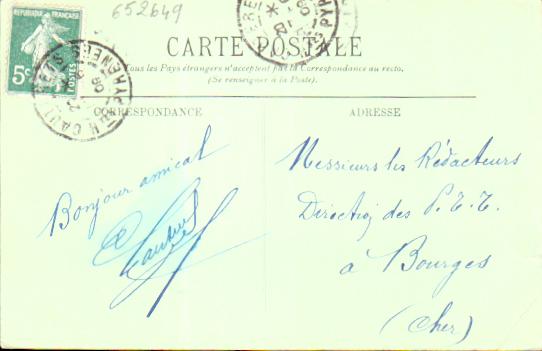 652649
REPUBLIQUE FRANÇAISE
5c
POSTES
CARTE POSTALE
Tous les Pays étrangers n'acceptent pas la Correspondance au recto.
(Se renseigner à la Poste).
CORRESPONDANCE
ADRESSE
Bonjour amical
Messieurs les Rédacteurs
Direction des P.T.T.
à Bourges
(Cher)